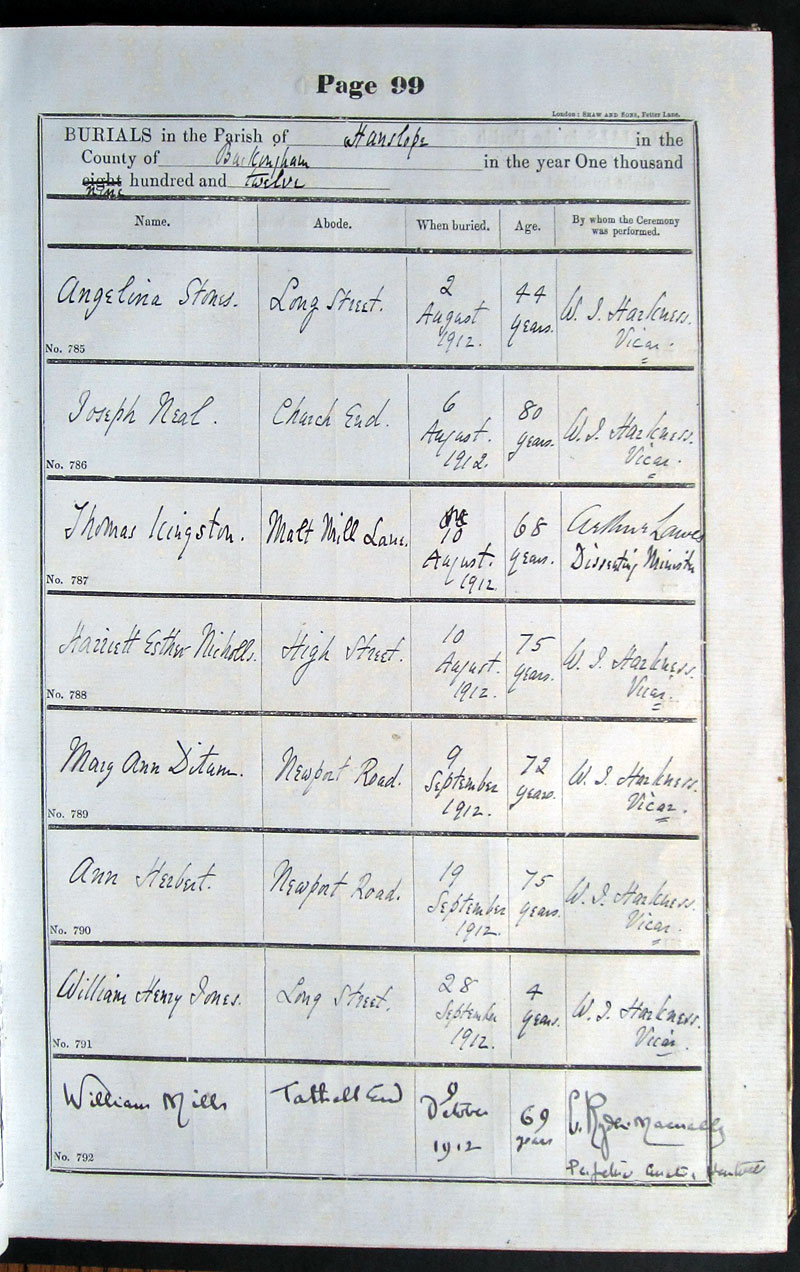 Page 99
London: SHAW AND SONS, Fetter Lane.
BURIALS in the Parish of Hanslope in the
County of Buckingham in the year One thousand
eight hundred and twelve
nine
Name. Abode. When buried. Age. By whom the Ceremony
was performed.
Angelina Stones. Long Street. 2 August 1912. 44 years. W. J. Harkness. Vicar.
No. 785
Joseph Neal. Church End. 6 August. 1912. 80 years. W. J. Harkness. Vicar.
No. 786
Thomas Kingston. Malt Mill Lane. 10 August. 1912. 68 years. Arthur Lawes Dissenting Minister
No. 787
Harriett Esther Nicholls. High Street. 10 August. 1912. 75 years. W. J. Harkness. Vicar.
No. 788
Mary Ann Ditum. Newport Road. 9 September 1912. 72 years. W. J. Harkness. Vicar.
No. 789
Ann Herbert. Newport Road. 19 September 1912. 75 years. W. J. Harkness. Vicar.
No. 790
William Henry Jones. Long Street. 28 September 1912. 4 years. W. J. Harkness. Vicar.
No. 791
William Mills Tathall End 9 October 1912 69 years
No. 792